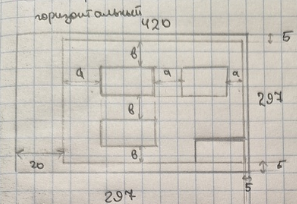 горизонтальный
420
5
в
а
а
а
297
в
в
20
5
5
297